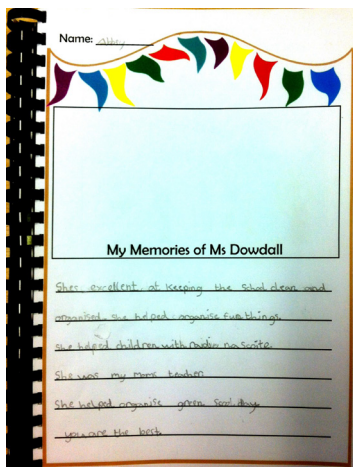 Name: Abbey
My Memories of Ms Dowdall
Shes excellent at keeping the School clean and
organised. she helped organise fun things.
She helped children with
She was my moms teacher
She helped organise green School day
you are the best